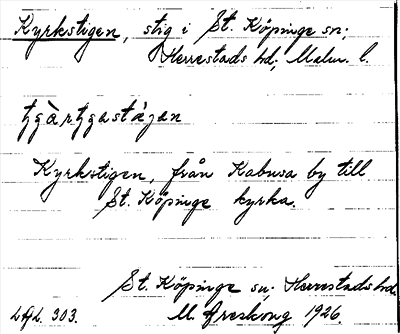 Kyrkstigen, stig i St. Köpinge sn;
Herrestads hd; Malm. l.
Kyrkstigen, från Kabusa by till
St. Köpinge kyrka.
St. Köpinge sn; Herrestads hd.
LAL. 303. M. 1926